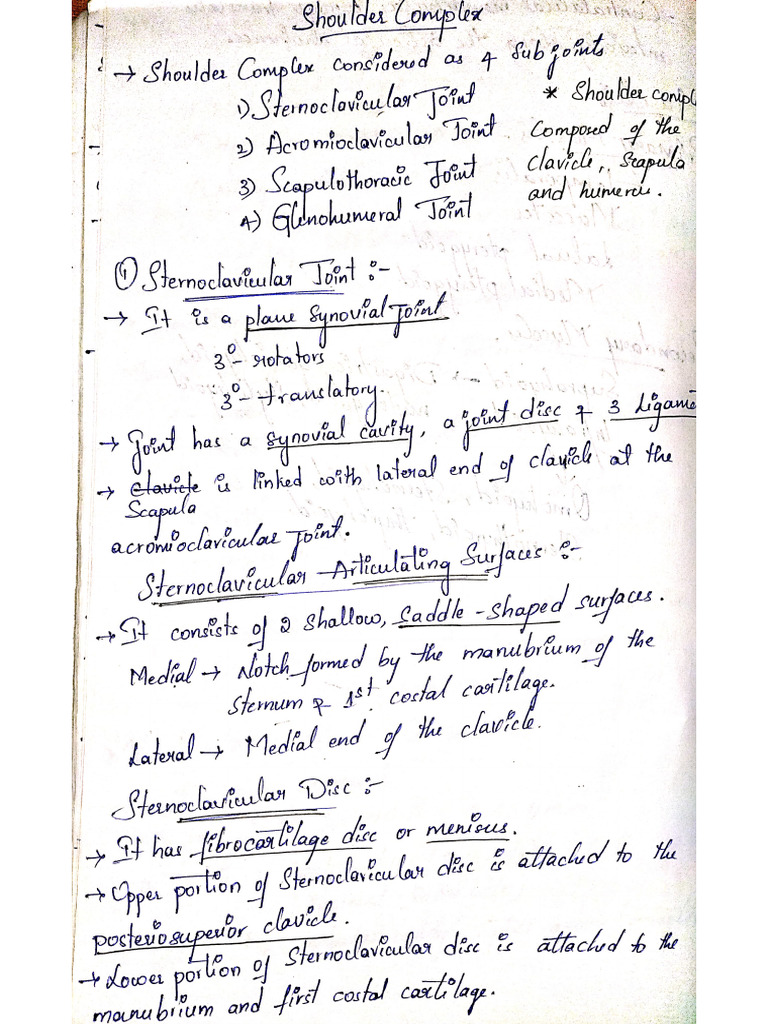 Shoulder Complex
→ Shoulder Complex considered as 4 Subjoints
1) Sternoclavicular Joint
2) Acromioclavicular Joint
3) Scapulothoracic Joint
4) Glenohumeral Joint
* Shoulder compl
Composed of the
clavicle, Scapula
and humeru.
① Sternoclavicular Joint :-
→ It is a plane synovial Joint
3°- rotators
3°- translatory.
→ Joint has a synovial cavity, a joint disc & 3 Ligame
→ Clavicle is linked with lateral end of clavicle at the
Scapula
acromioclavicular Joint.
Sternoclavicular Articulating Surfaces :-
→ It consists of 2 shallow, saddle-shaped surfaces.
Medial → Notch formed by the manubrium of the
Sternum & 1st costal cartilage.
Lateral → Medial end of the clavicle.
Sternoclavicular Disc :-
→ It has fibrocartilage disc or menisus.
→ Upper portion of Sternoclavicular disc is attached to the
posteriosuperior clavicle.
→ Lower portion of Sternoclavicular disc is attached to the
manubrium and first costal cartilage.